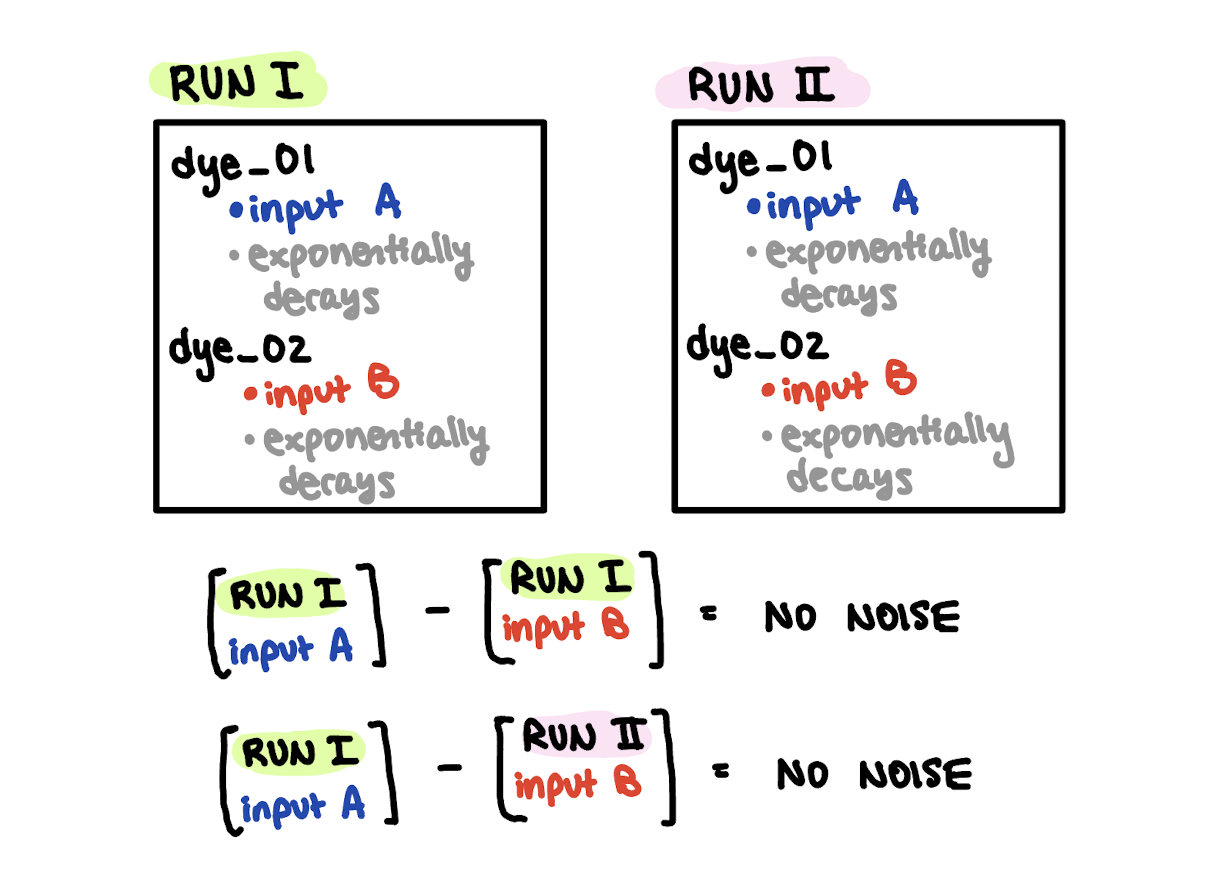 RUN I
dye_01
• input A
• exponentially
decays
dye_02
• input B
• exponentially
decays
RUN II
dye_01
• input A
• exponentially
decays
dye_02
• input B
• exponentially
decays
[RUN I input A] - [RUN I input B] = NO NOISE
[RUN I input A] - [RUN II input B] = NO NOISE